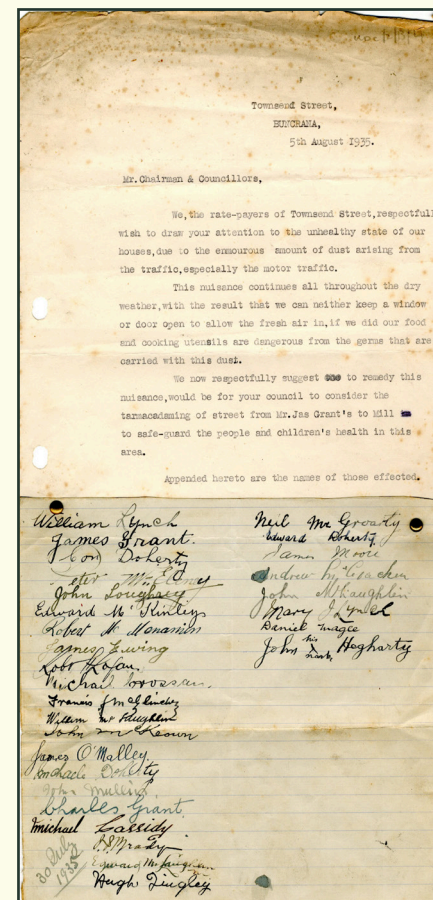 Townsend Street,
BUNCRANA,
5th August 1935.
Mr. Chairman & Councillors,
We, the rate-payers of Townsend Street, respectfull
wish to draw your attention to the unhealthy state of our
houses, due to the enmourous amount of dust arising from
the traffic, especially the motor traffic.
This nuisance continues all throughout the dry
weather, with the result that we can neither keep a window
or door open to allow the fresh air in, if we did our food
and cooking utensils are dangerous from the germs that are
carried with this dust.
We now respectfully suggest to remedy this
nuisance, would be for your council to consider the
tarmacadaming of street from Mr. Jas Grant's to Mill
to safe-guard the people and children's health in this
area.
Appended hereto are the names of those effected.
William Lynch
James Grant.
Con Doherty
Peter McEleney
John Loughrey
Edward Mc
Robert Mc Menamin
James Ewing
Robt
Michael Crossan.
Francis J McGlinchey
William Mc Laughlin
John McKeown
James O'Malley
Michael Doherty
John Mullins.
Charles Grant
Michael Cassidy
Edward Mc
Hugh
30 July
1935
Neil Mc Groarty
Edward Doherty
James Moore
Andrew
John McLaughlin
Mary J Lynch
Daniel Magee
John his mark Hegharty